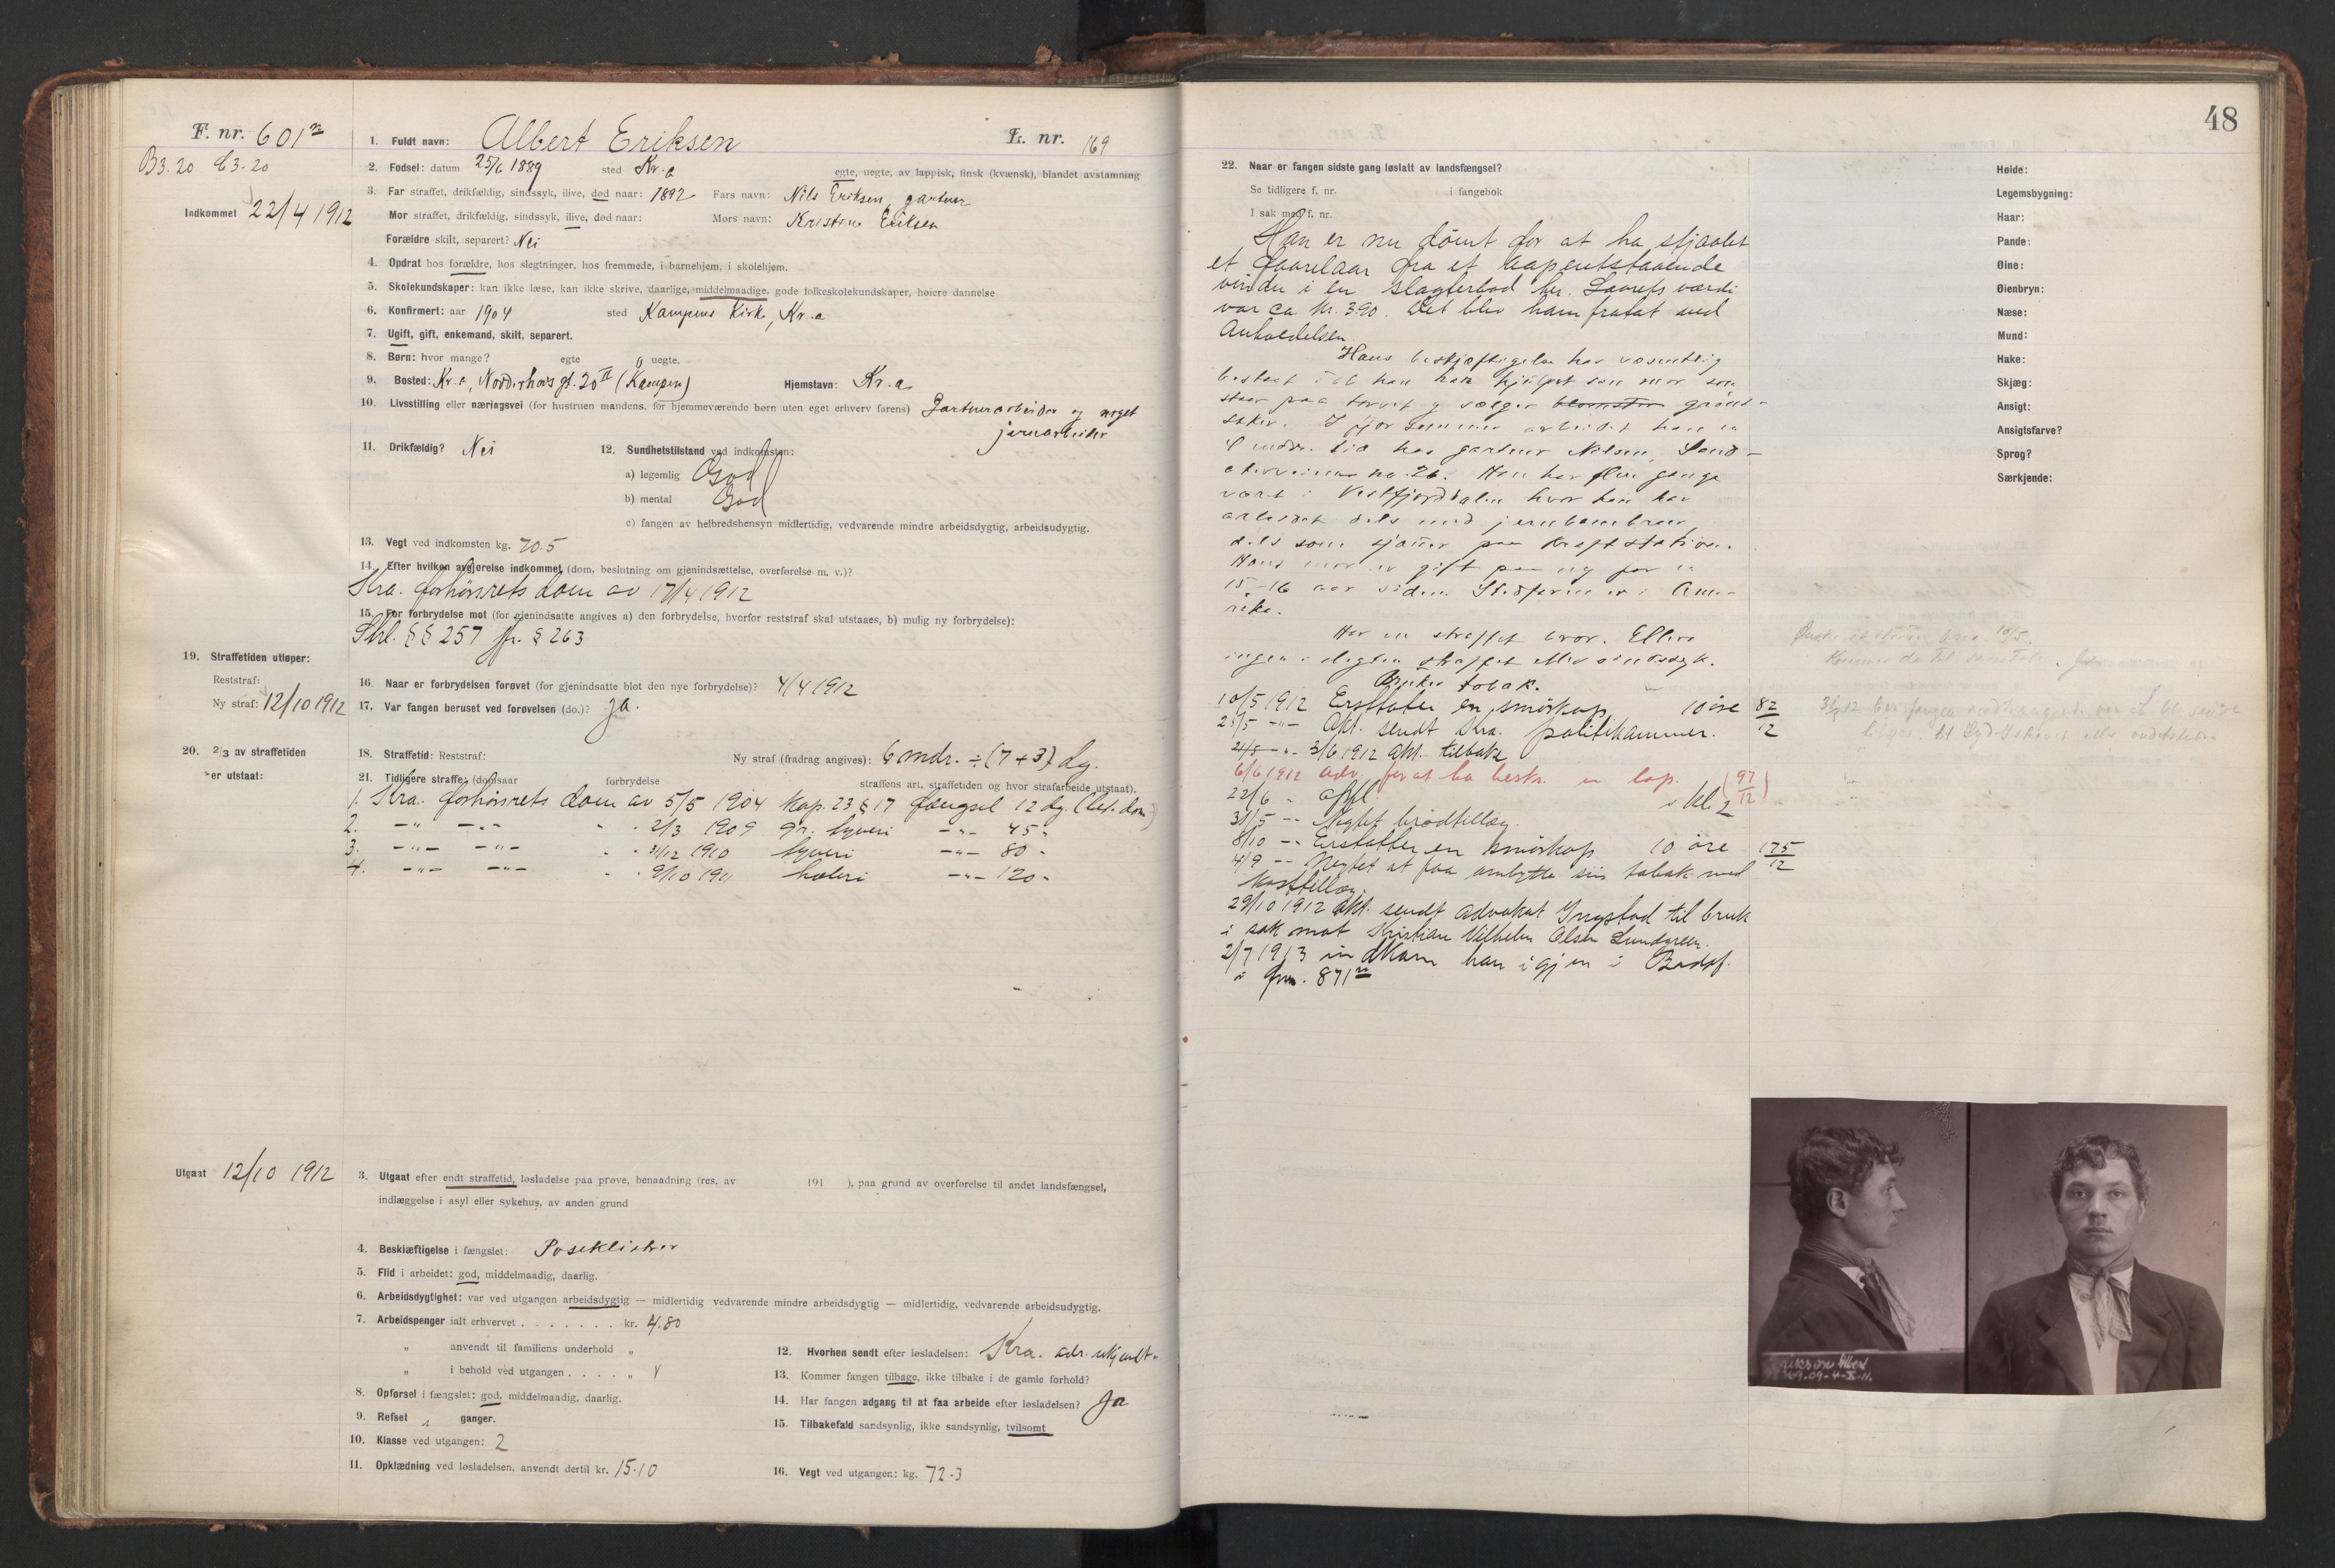 F. nr. 601ⁿ
B3.20 C3-20
Indkommet 22/4 1912
1. Fuldt navn: Albert Eriksen L. nr. 169
2. Fødsel: datum 25/6 1889 sted Kr.a egte, uegte, av lappisk, finsk (kvænsk), blandet avstamning
3. Far straffet, drikfældig, sindssyk, ilive, død naar: 1892 Fars navn: Nils Eriksen, gartner
Mor straffet, drikfældig, sindssyk, ilive, død naar: Mors navn: Kristine Eriksen
Forældre skilt, separert? Nei
4. Opdrat hos forældre, hos slegtninger, hos fremmede, i barnehjem, i skolehjem.
5. Skolekundskaper: kan ikke læse, kan ikke skrive, daarlige, middelmaadige, gode folkeskolekundskaper, høiere dannelse
6. Konfirmert: aar 1904 sted Kampens Kirke, Kr.a
7. Ugift, gift, enkemand, skilt, separert.
8. Børn: hvor mange? egte 0 uegte.
9. Bosted: Kr.a, Norderhovs gt. 20 II (Kampen) Hjemstavn: Kr.a.
10. Livsstilling eller næringsvei (for hustruen mandens, for hjemmeværende børn uten eget erhverv farens) Gartnerarbeider og noget
jernarbeider
11. Drikfældig? Nei 12. Sundhetstilstand ved indkomsten:
a) legemlig God
b) mental God
c) fangen av helbredshensyn midlertidig, vedvarende mindre arbeidsdygtig, arbeidsudygtig.
13. Vegt ved indkomsten kg. 70.5
14. Efter hvilken avgjørelse indkommet (dom, beslutning om gjenindsættelse, overførelse m. v.)?
Kra. forhørsrets dom av 17/4 1912
15. For forbrydelse mot (for gjenindsatte angives a) den forbrydelse, hvorfor reststraf skal utstaaes, b) mulig ny forbrydelse):
Strl. §§ 257 jfr. § 263
19. Straffetiden utløper:
Reststraf:
Ny straf: 12/10 1912
16. Naar er forbrydelsen forøvet (for gjenindsatte blot den nye forbrydelse)? 4/4 1912
17. Var fangen beruset ved forøvelsen (do.)? Ja.
20. 2/3 av straffetiden
er utstaat:
18. Straffetid: Reststraf: Ny straf (fradrag angives): 6 mdr. ÷ (7+3) dg.
21. Tidligere straffe: (domsaar forbrydelse straffens art, straffetiden og hvor strafarbeide utstaat).
1. Kra. forhørsrets dom av 5/5 1904 kap. 23 § 17 fængsel 12 dg. (bet. dom)
2. -"- -"- " " 2/3 1909 gr. tyveri -"- 45 "
3. -"- -"- " " 31/12 1910 tyveri -"- 80 "
4. -"- -"- " " 9/10 1911 hæleri -"- 120 "
Utgaat 12/10 1912
3. Utgaat efter endt straffetid, løsladelse paa prøve, benaadning (res. av 191 ), paa grund av overførelse til andet landsfængsel,
indlæggelse i asyl eller sykehus, av anden grund
4. Beskiæftigelse i fængslet: Poseklistrer
5. Flid i arbeidet: god, middelmaadig, daarlig.
6. Arbeidsdygtighet: var ved utgangen arbeidsdygtig — midlertidig vedvarende mindre arbeidsdygtig — midlertidig, vedvarende arbeidsudygtig.
7. Arbeidspenger ialt erhvervet . . . . . . . kr. 4.80
" anvendt til familiens underhold "
" i behold ved utgangen . . . . "
8. Opførsel i fængslet: god, middelmaadig, daarlig.
9. Refset ganger.
10. Klasse ved utgangen: 2
11. Opklædning ved løsladelsen, anvendt dertil kr. 15.10
12. Hvorhen sendt efter løsladelsen: Kra. adr. ukjendt.
13. Kommer fangen tilbage, ikke tilbake i de gamle forhold?
14. Har fangen adgang til at faa arbeide efter løsladelsen? Ja
15. Tilbakefald sandsynlig, ikke sandsynlig, tvilsomt
16. Vegt ved utgangen: kg. 72.3
48
22. Naar er fangen sidste gang løslatt av landsfængsel?
Se tidligere f. nr. i fangebok
I sak med f. nr.
Han er nu dømt for at ha stjaalet
et faarelaar fra et aapentstaaende
vindu i en slagterbod her. Laarets værdi
var ca. kr. 3.90. Det blev ham fratat ved
Anholdelsen.
Hans beskjæftigelse har væsentlig
bestaat i at han har hjulpet sin mor som
staar paa torvet og sælger blomster grønt-
saker. I fjor sommer arbeidet han en
4 mdrs. tid hos gartner Nilsen, Sand-
akerveien no. 26. Han har flere gange
vært i Vestfjorddalen hvor han har
arbeidet dels med jernbanebroer,
dels som sjauer paa kraftstation.
Hans mor er gift paa ny for en
15-16 aar siden. Stedfaren er i Ame-
rika.
Har en straffet bror. Ellers
ingen i slegten straffet eller sindssyk.
Bruker tobak.
10/5 1912 Erstatter en smørkop 10 øre 82/12
25/5 -"- Akt. sendt Kra. politikammer.
3/6 1912 Akt. tilbake
6/6 1912 adv. for at ha beskr. en lap. (97/12)
22/6 - Opfl. i kl. 2
31/5 -- Negtet brødtillæg.
8/10 -- Erstatter en smørkop 10 øre 175/12
4/9 -- Negtet at faa ombytte sin tobak med
kosttillæg.
29/10 1912 Akt. sendt advokat Ingstad til bruk
i sak mot Kristian Vilhelm Olsen Lundgreen.
2/7 1913 indkom han igjen i Bodsf.
fnr. 871ⁿ
Høide:
Legemsbygning:
Haar:
Pande:
Øine:
Øienbryn:
Næse:
Mund:
Hake:
Skjæg:
Ansigt:
Ansigtsfarve?
Sprog?
Særkjende:
Albert
09-4-X-11.